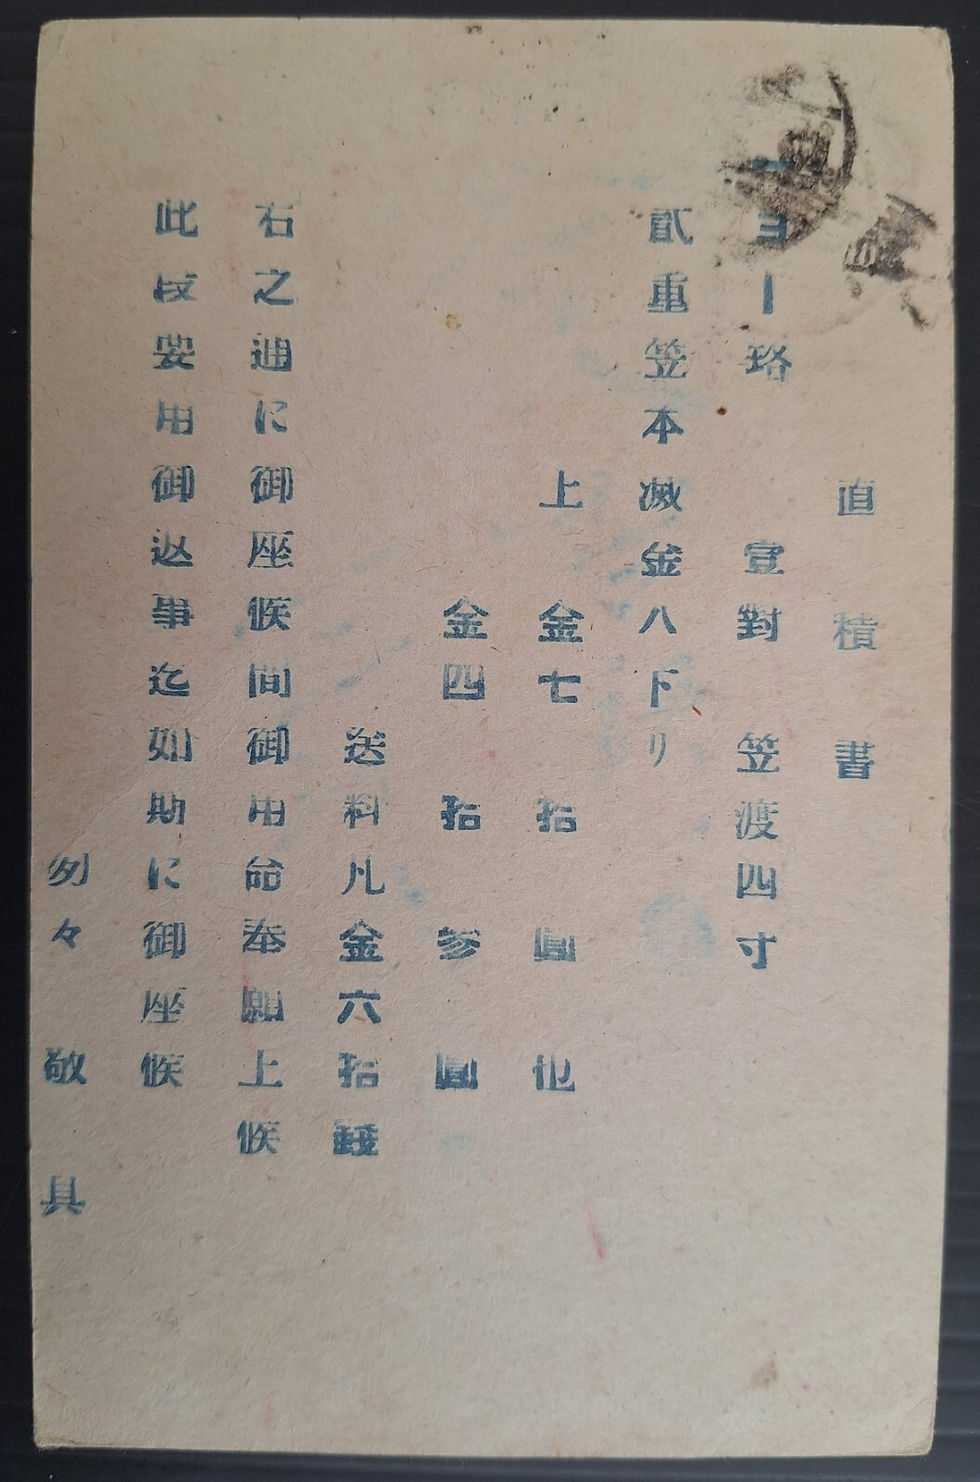 直積書
一ヨー珞　壹對　笠渡四寸
貳重笠本滅金八下リ
上　金七拾圓也
金四拾参圓
送料凡金六拾錢
右之通に御座候間御用命奉願上候
此段要用御返事迄如斯に御座候
匆々敬具